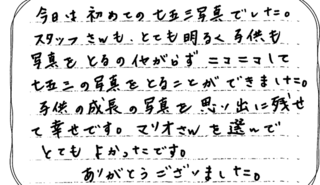 今日は初めての七五三写真でした。
スタッフさんも、とても明るく子供も
写真をとるのイヤがらずニコニコして
七五三の写真をとることができました。
子供の成長の写真を思い出に残せ
て幸せです。マリオさんを選んで
とてもよかったです。
ありがとうございました。